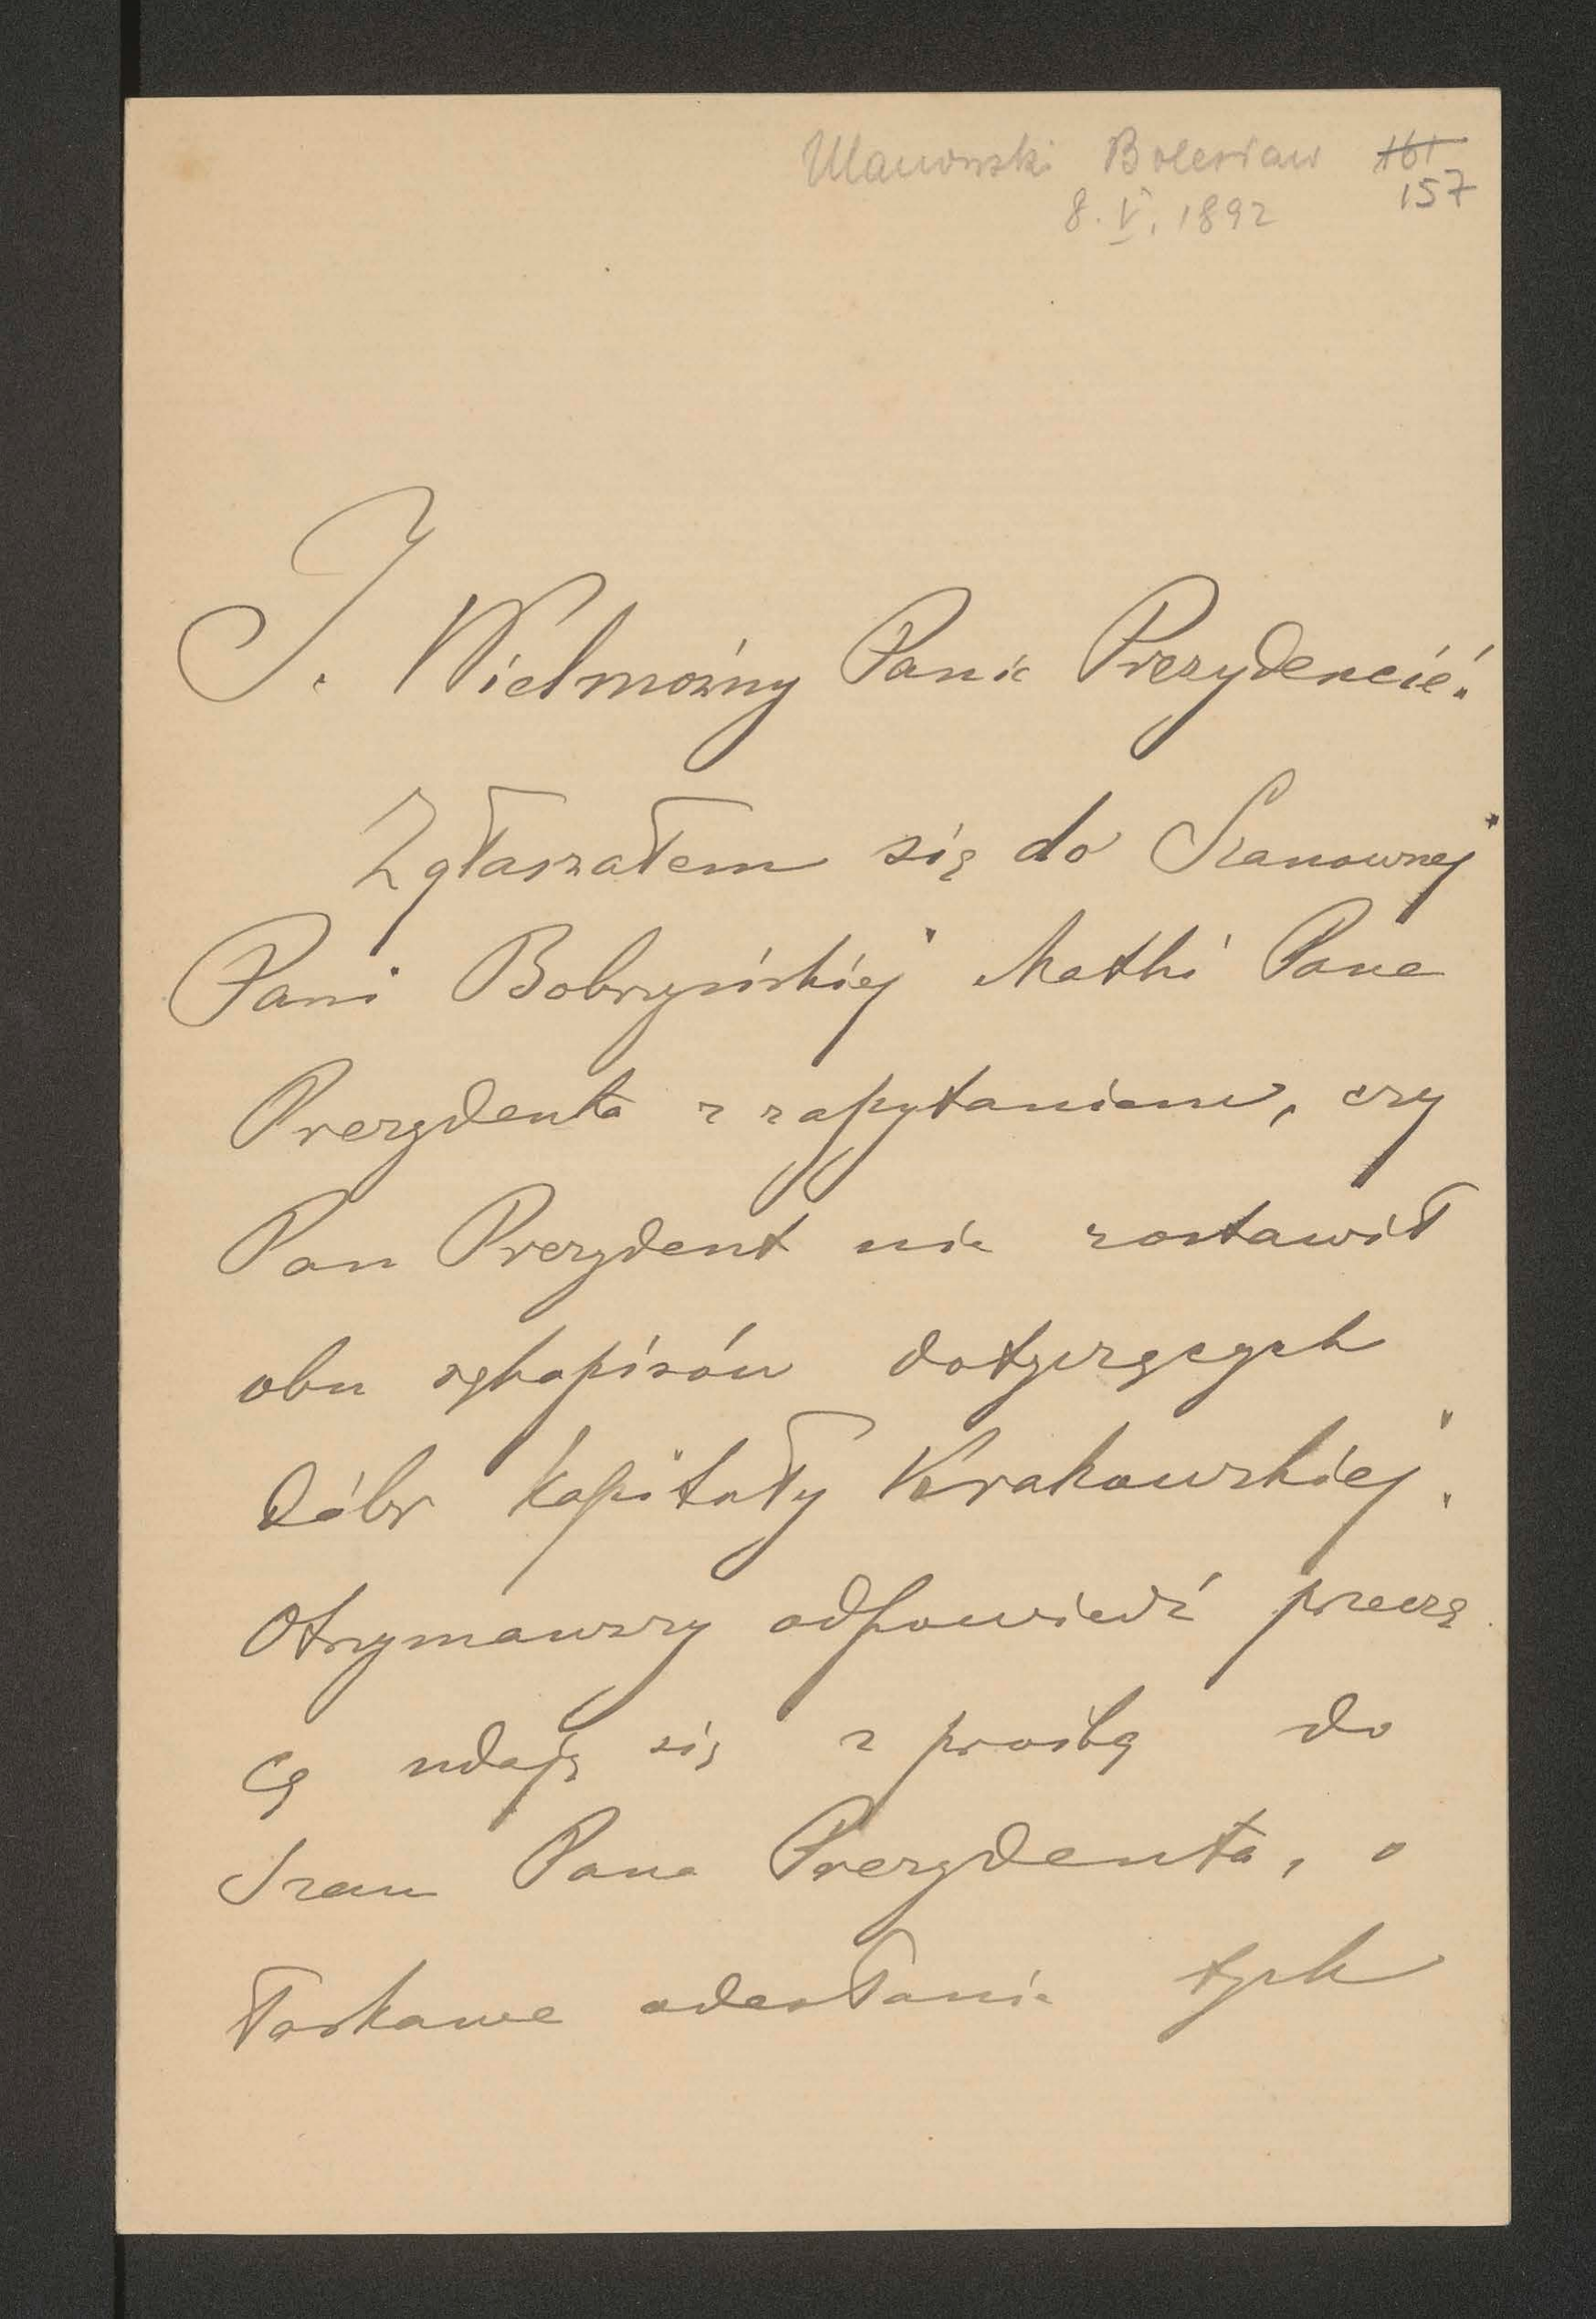 Ulanowski Bolesław 161
8. V. 1892 157
J. Wielmożny Panie Prezydencie!
Zgłaszałem się do Szanownej
Pani Bobrzyńskiej Matki Pana
Prezydenta z zapytaniem, czy
Pan Prezydent nie zostawił
obu rękopisów dotyczących
dóbr kapituły Krakowskiej.
Otrzymawszy odpowiedź przeczą
cą udaję się z prośbą do
Szan Pana Prezydenta, o
łaskawe odesłanie tych